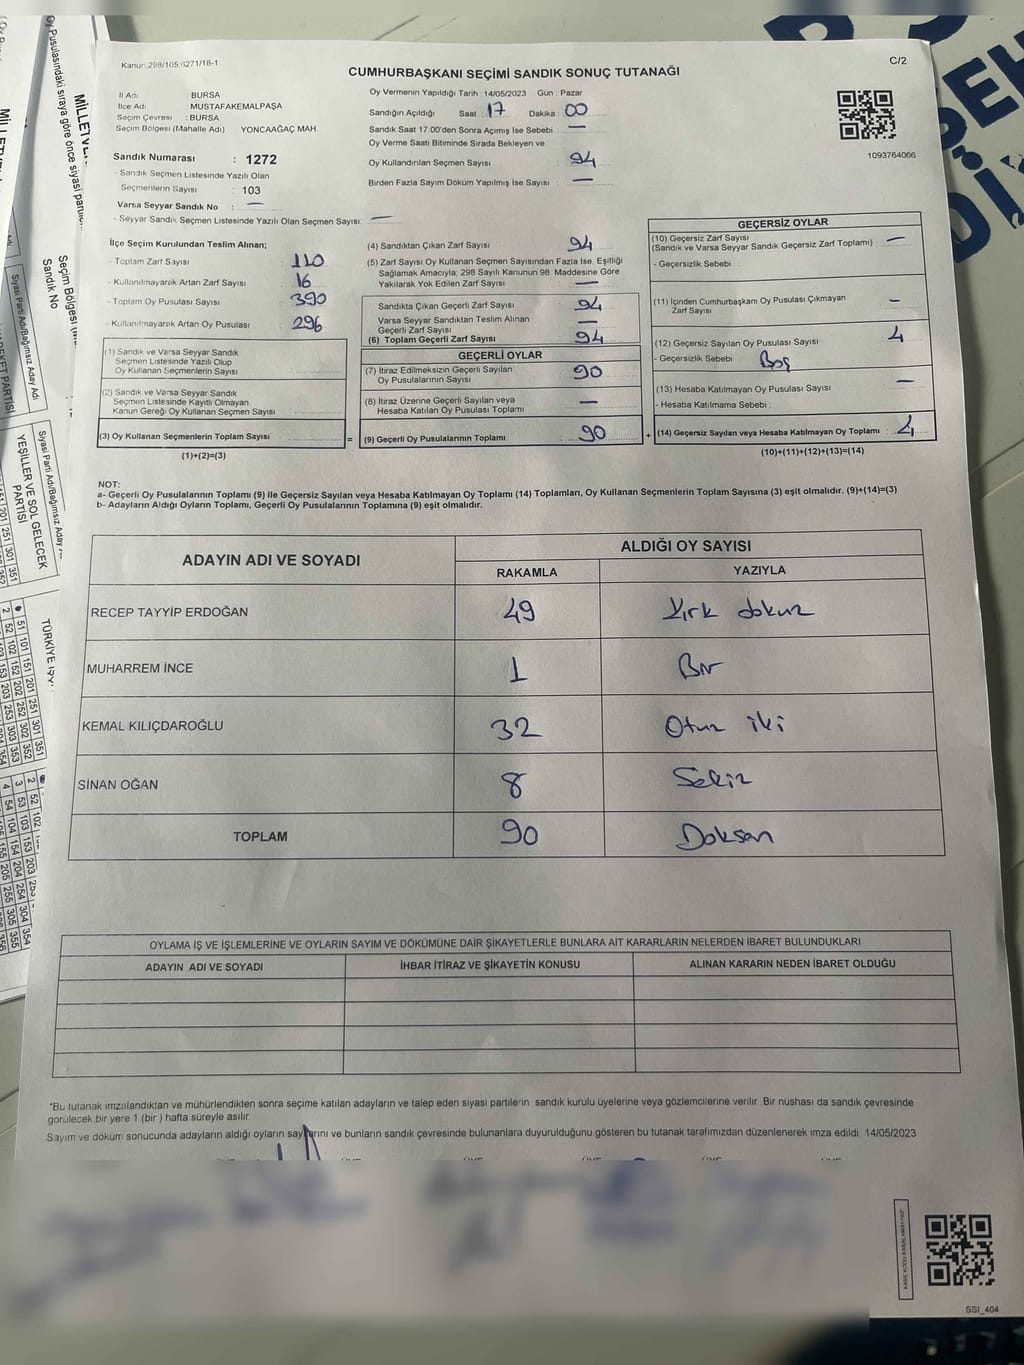 Kanun: 298/105;6271/18-1
C/2
CUMHURBAŞKANI SEÇİMİ SANDIK SONUÇ TUTANAĞI
İl Adı : BURSA
İlçe Adı : MUSTAFAKEMALPAŞA
Seçim Çevresi : BURSA
Seçim Bölgesi (Mahalle Adı) YONCAAĞAÇ MAH.
Sandık Numarası : 1272
- Sandık Seçmen Listesinde Yazılı Olan
Seçmenlerin Sayısı : 103
Varsa Seyyar Sandık No : —
- Seyyar Sandık Seçmen Listesinde Yazılı Olan Seçmen Sayısı: —
Oy Vermenin Yapıldığı Tarih : 14/05/2023 Gün : Pazar
Sandığın Açıldığı Saat : 17 Dakika : 00
Sandık Saat 17:00'den Sonra Açımış İse Sebebi : —
Oy Verme Saati Bitiminde Sırada Bekleyen ve
Oy Kullandırılan Seçmen Sayısı : 94
Birden Fazla Sayım Döküm Yapılmış İse Sayısı : —
1093764066
İlçe Seçim Kurulundan Teslim Alınan;
- Toplam Zarf Sayısı : 110
- Kullanılmayarak Artan Zarf Sayısı : 16
- Toplam Oy Pusulası Sayısı : 390
- Kullanılmayarak Artan Oy Pusulası : 296
(1) Sandık ve Varsa Seyyar Sandık
Seçmen Listesinde Yazılı Olup
Oy Kullanan Seçmenlerin Sayısı :
(2) Sandık ve Varsa Seyyar Sandık
Seçmen Listesinde Kayıtlı Olmayan
Kanun Gereği Oy Kullanan Seçmen Sayısı :
(3) Oy Kullanan Seçmenlerin Toplam Sayısı :
(1)+(2)=(3)
(4) Sandıktan Çıkan Zarf Sayısı : 94
(5) Zarf Sayısı Oy Kullanan Seçmen Sayısından Fazla İse, Eşitliği
Sağlamak Amacıyla, 298 Sayılı Kanunun 98. Maddesine Göre
Yakılarak Yok Edilen Zarf Sayısı : —
Sandıkta Çıkan Geçerli Zarf Sayısı : 94
Varsa Seyyar Sandıktan Teslim Alınan
Geçerli Zarf Sayısı : —
(6) Toplam Geçerli Zarf Sayısı : 94
GEÇERLİ OYLAR
(7) İtiraz Edilmeksizin Geçerli Sayılan
Oy Pusulalarının Sayısı : 90
(8) İtiraz Üzerine Geçerli Sayılan veya
Hesaba Katılan Oy Pusulası Toplamı : —
= (9) Geçerli Oy Pusulalarının Toplamı : 90
GEÇERSİZ OYLAR
(10) Geçersiz Zarf Sayısı
(Sandık ve Varsa Seyyar Sandık Geçersiz Zarf Toplamı) : —
- Geçersizlik Sebebi :
(11) İçinden Cumhurbaşkanı Oy Pusulası Çıkmayan
Zarf Sayısı : —
(12) Geçersiz Sayılan Oy Pusulası Sayısı : 4
- Geçersizlik Sebebi : Boş
(13) Hesaba Katılmayan Oy Pusulası Sayısı : —
- Hesaba Katılmama Sebebi :
+ (14) Geçersiz Sayılan veya Hesaba Katılmayan Oy Toplamı : 4
(10)+(11)+(12)+(13)=(14)
NOT:
a- Geçerli Oy Pusulalarının Toplamı (9) ile Geçersiz Sayılan veya Hesaba Katılmayan Oy Toplamı (14) Toplamları, Oy Kullanan Seçmenlerin Toplam Sayısına (3) eşit olmalıdır. (9)+(14)=(3)
b- Adayların Aldığı Oyların Toplamı, Geçerli Oy Pusulalarının Toplamına (9) eşit olmalıdır.
ADAYIN ADI VE SOYADI ALDIĞI OY SAYISI
RAKAMLA YAZIYLA
RECEP TAYYİP ERDOĞAN 49 Kırk dokuz
MUHARREM İNCE 1 Bir
KEMAL KILIÇDAROĞLU 32 Otuz iki
SİNAN OĞAN 8 Sekiz
TOPLAM 90 Doksan
OYLAMA İŞ VE İŞLEMLERİNE VE OYLARIN SAYIM VE DÖKÜMÜNE DAİR ŞİKAYETLERLE BUNLARA AİT KARARLARIN NELERDEN İBARET BULUNDUKLARI
ADAYIN ADI VE SOYADI İHBAR İTİRAZ VE ŞİKAYETİN KONUSU ALINAN KARARIN NEDEN İBARET OLDUĞU
*Bu tutanak imzalandıktan ve mühürlendikten sonra seçime katılan adayların ve talep eden siyasi partilerin sandık kurulu üyelerine veya gözlemcilerine verilir. Bir nüshası da sandık çevresinde
görülecek bir yere 1 (bir ) hafta süreyle asılır.
Sayım ve döküm sonucunda adayların aldığı oyların sayılarını ve bunların sandık çevresinde bulunanlara duyurulduğunu gösteren bu tutanak tarafımızdan düzenlenerek imza edildi. 14/05/2023
KARE KODU KARALAMAYINIZ!
SSI_404
Oy Pusulasındaki sıraya göre önce siyasi
Seçim Bölgesi
Sandık No
Siyasi Parti Adı/Bağımsız Aday Adı
YEŞİLLER VE SOL GELECEK
PARTİSİ